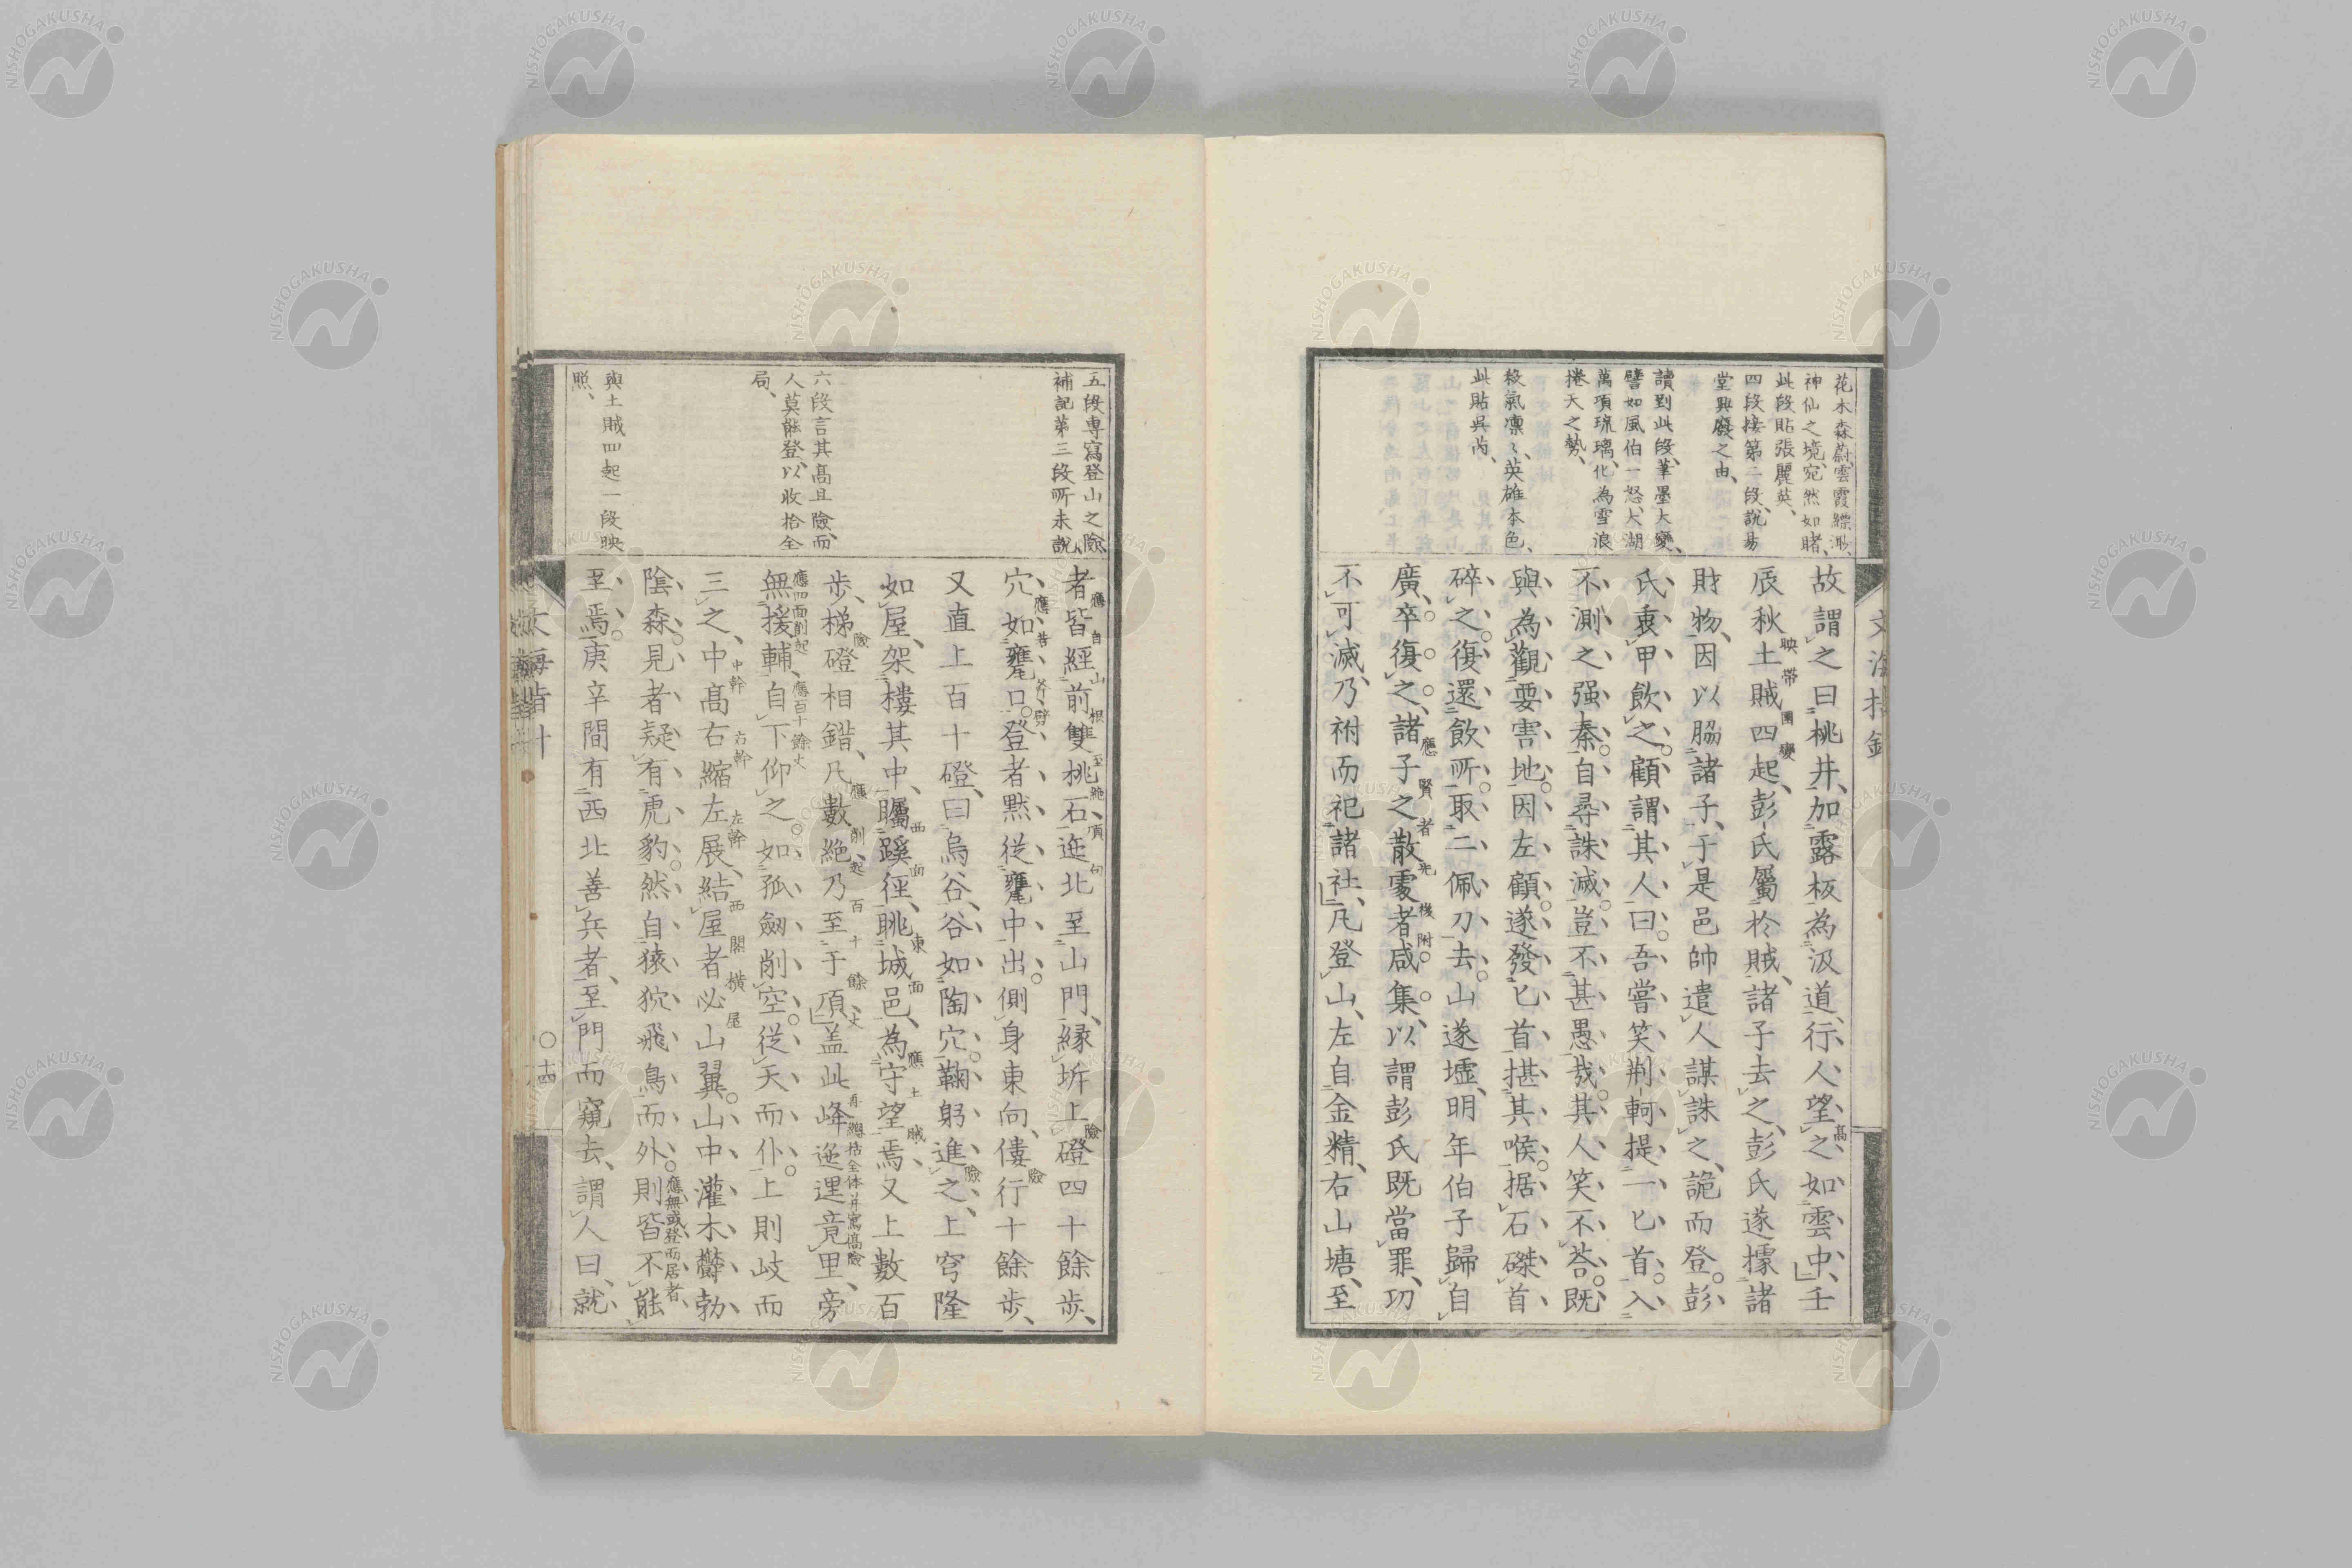 花木森蔚、雲霞縹渺、
神仙之境、宛然如睹、
此段貼張麗英、
四段接第二段、說易
堂興廢之由、
讀到此段、筆墨大變、
譬如風伯一怒、大湖
萬項琉璃、化為雪浪
捲天之勢、
殺氣凛〻、英雄本色、
此貼吳芮、
故謂之曰桃井、加露板為汲道、行人望之、如雲中、壬
高
辰秋土賊四起、彭氏屬於賊、諸子去之、彭氏遂據諸
映帶
國變
財物、因以脇諸子、于是邑帥遣人謀誅之、詭而登。彭
氏衷甲飲之。顧謂其人曰。吾嘗笑荆軻提一匕首。入
不測之强秦。自尋誅滅。豈不甚愚哉。其人笑不荅。既
與為觀要害地。因左顧。遂發匕首揕其喉。据石磔首
碎之。復還飲所。取二佩刀去。山遂墟、明年伯子歸自
廣、卒復之、諸子之散處者咸集、以謂彭氏既當罪、功
應賢者先後附
不可滅、乃祔而祀諸社、凡登山、左自金精、右山塘、至
五段專寫登山之險、
補記第三段所未說、
六段言其高且險、而
人莫能登、以收拾全
局、
與土賊四起一段映
照、
者皆經前雙桃石、迤北至山門、緣坼上磴四十餘步、
應自山根至絕頂句
險
穴、如甕口。登者默從甕中出。側身東向、僂行十餘步、
險
又直上百十磴、曰烏谷、谷如陶穴。鞠躬進之、上穹隆
險
如屋、架樓其中、矚蹊徑、眺城邑、為守望焉、又上數百
西面
東面
應土賊
步、梯磴相錯、凡數絕、乃至于頂、盖此峰迤𨓦竟里、旁
險
應削起百十餘丈
再總括全体并寫高險
無援輔、自下仰之。如孤劔削空。從天而仆。上則岐而
應四面削起、應百十餘丈
三之、中高右縮左展、結屋者必山翼。山中灌木欝勃、
中幹
右幹
左幹
西閣橫屋
陰森。見者疑有虎豹。然自猿狖飛鳥而外。則皆不能
應無或登而居者、
至焉。庚辛間有西北善兵者、至門而窺去、謂人曰、就
十四
NISHOGAKUSHA